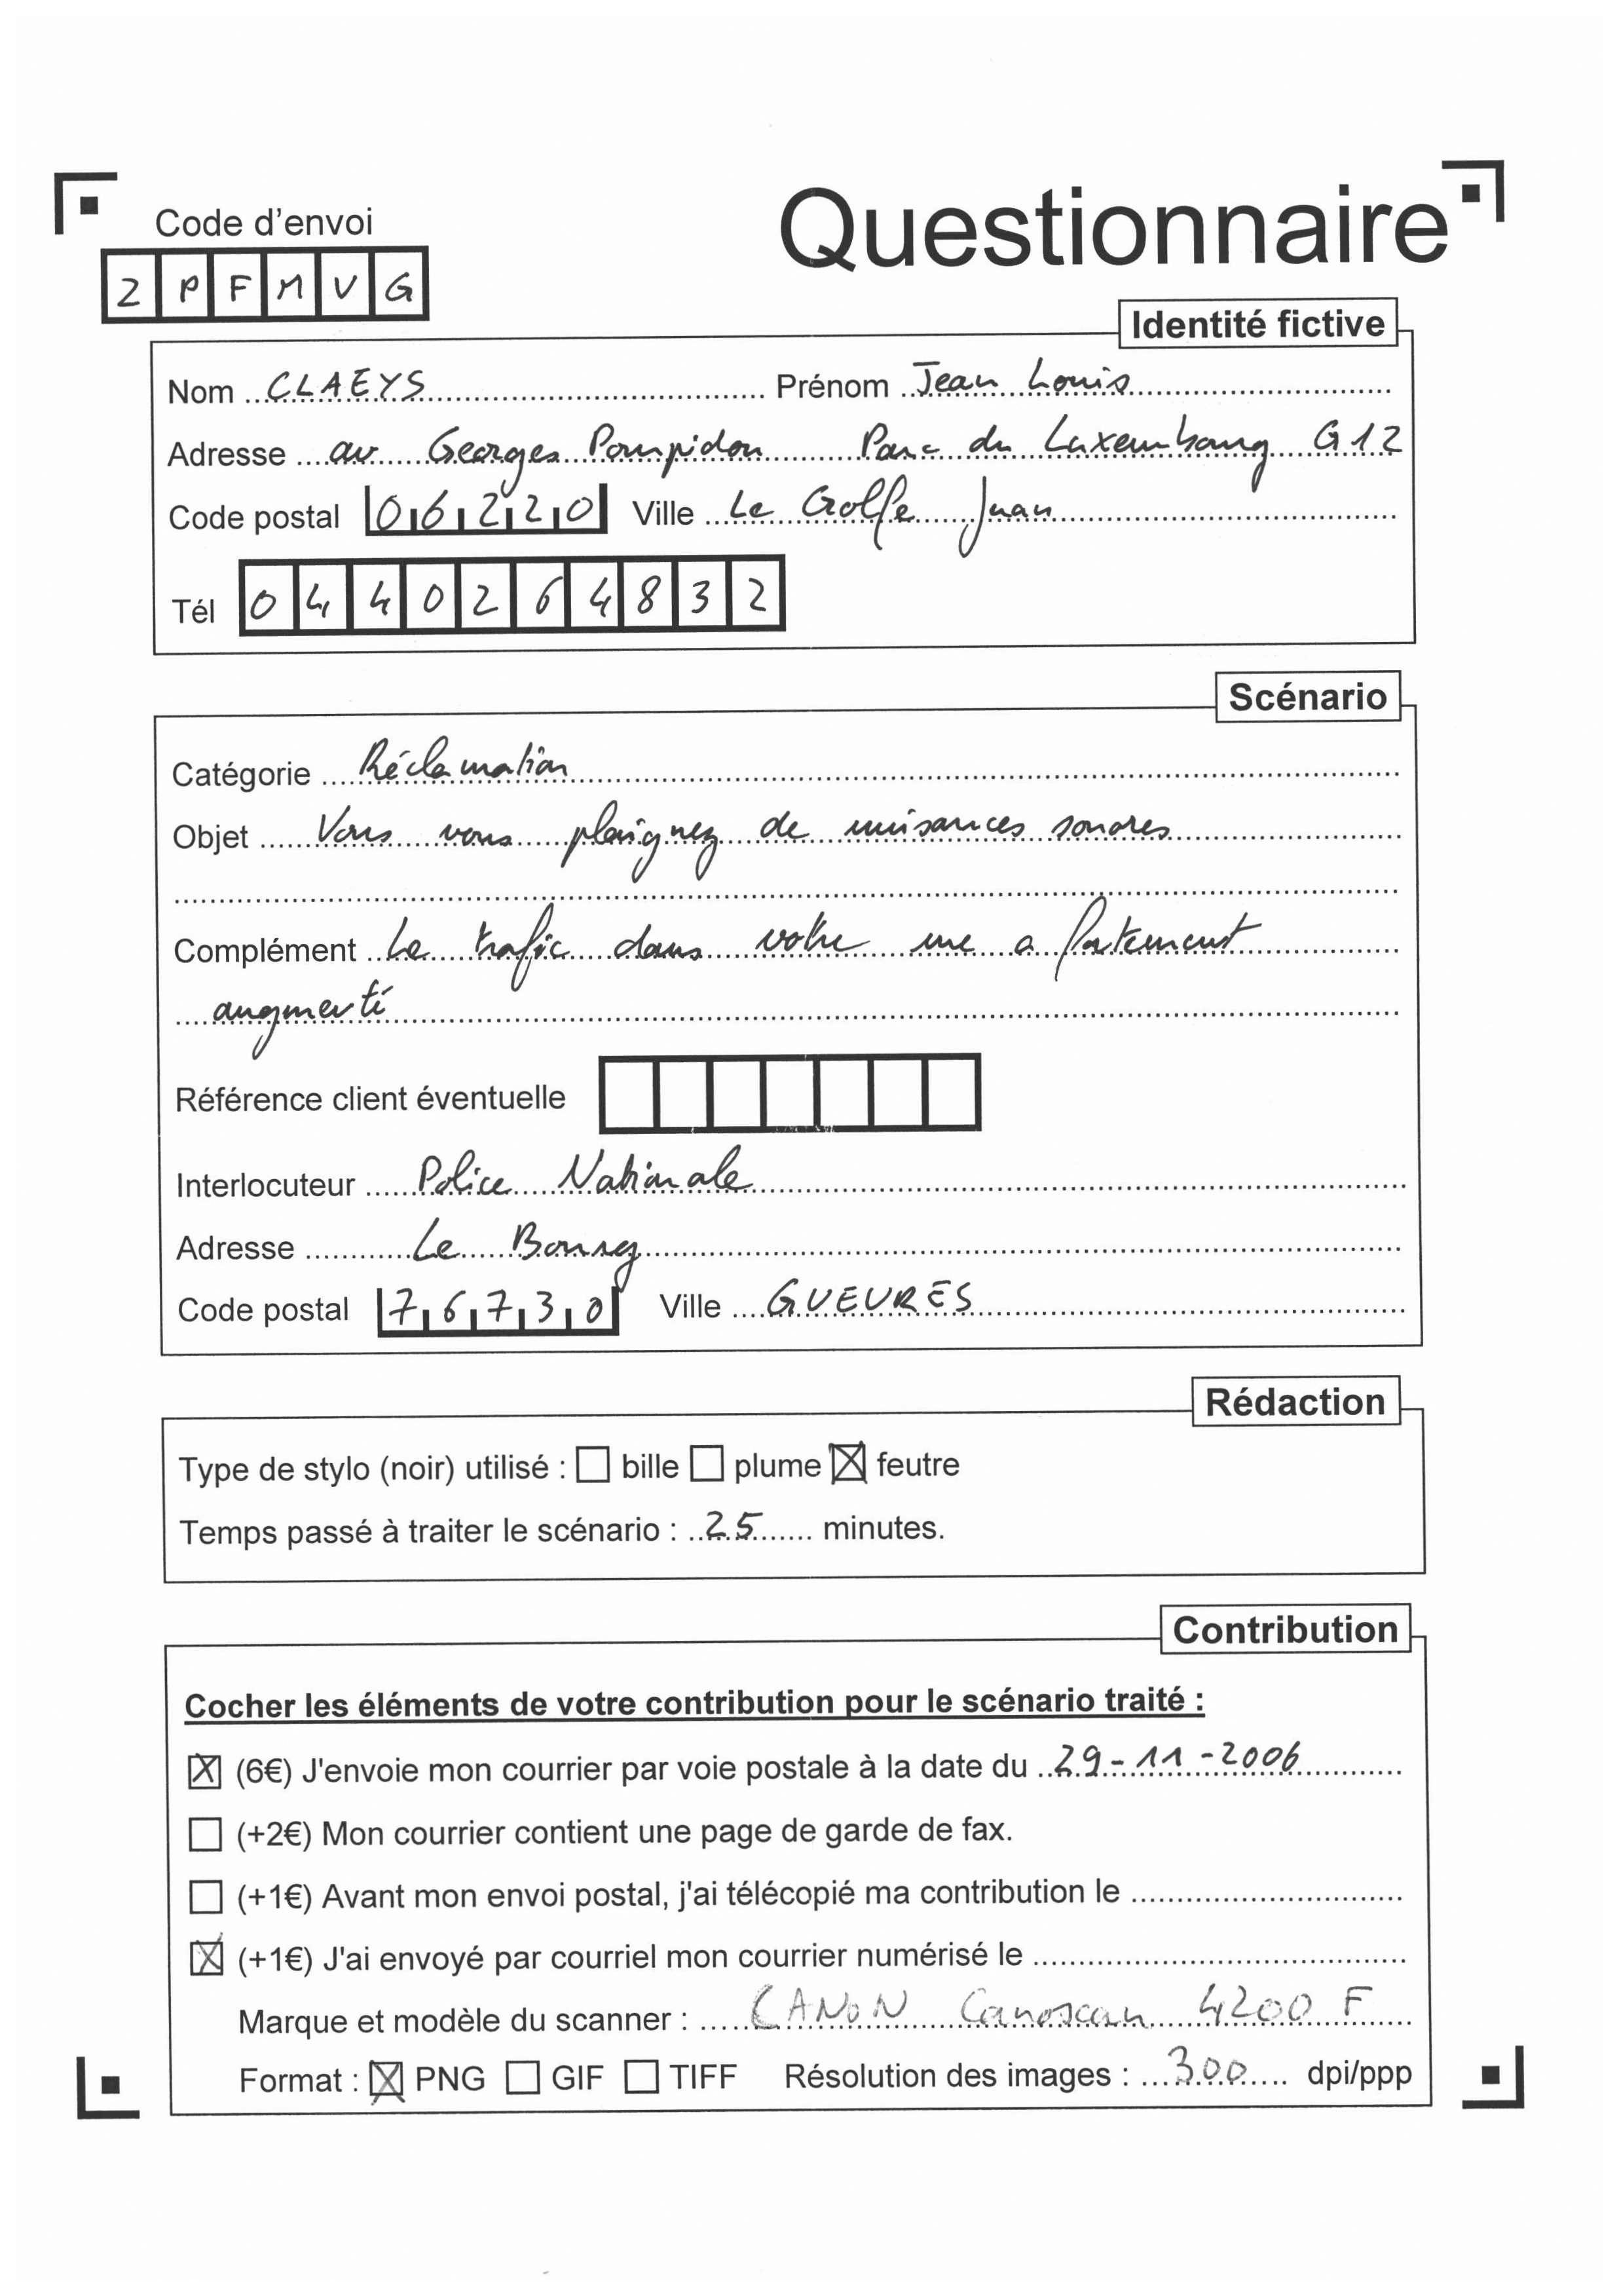 Code d'envoi
Questionnaire
2 P F M V G
Identité fictive
Nom CLAEYS Prénom Jean Louis
Adresse av Georges Pompidou Parc du Luxembourg G12
Code postal 06220 Ville Le Golfe Juan
Tél 0440264832
Scénario
Catégorie Réclamation
Objet Vous vous plaignez de nuisances sonores
Complément Le trafic dans votre rue a fortement
augmenté
Référence client éventuelle
Interlocuteur Police Nationale
Adresse Le Bourg
Code postal 76730 Ville GUEURES
Rédaction
Type de stylo (noir) utilisé : bille plume feutre
Temps passé à traiter le scénario : 25 minutes.
Contribution
Cocher les éléments de votre contribution pour le scénario traité :
(6€) J'envoie mon courrier par voie postale à la date du 29-11-2006
(+2€) Mon courrier contient une page de garde de fax.
(+1€) Avant mon envoi postal, j'ai télécopié ma contribution le
(+1€) J'ai envoyé par courriel mon courrier numérisé le
Marque et modèle du scanner : CANON Canoscan 4200 F
Format : PNG GIF TIFF Résolution des images : 300 dpi/ppp